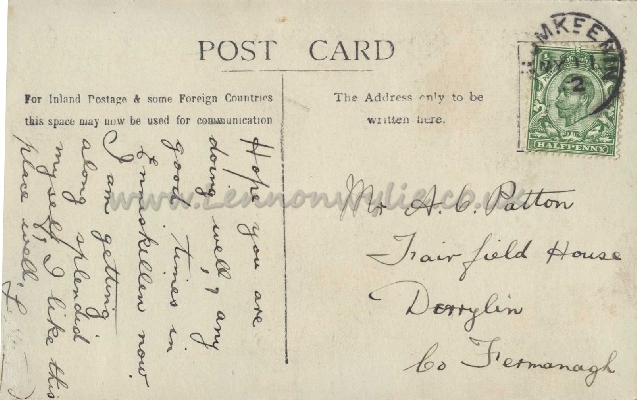 POST CARD
For Inland Postage & some Foreign Countries
this space may now be used for communication
The Address only to be
written here.
HALFPENNY
2
Mr A. C. Patton
Fairfield House
Derrylin
Co Fermanagh
Hope you are
doing well, & any
good times in
Enniskillen now.
I am getting
along splendid
myself, I like this
place well,
www.Lennonwylie.co.uk